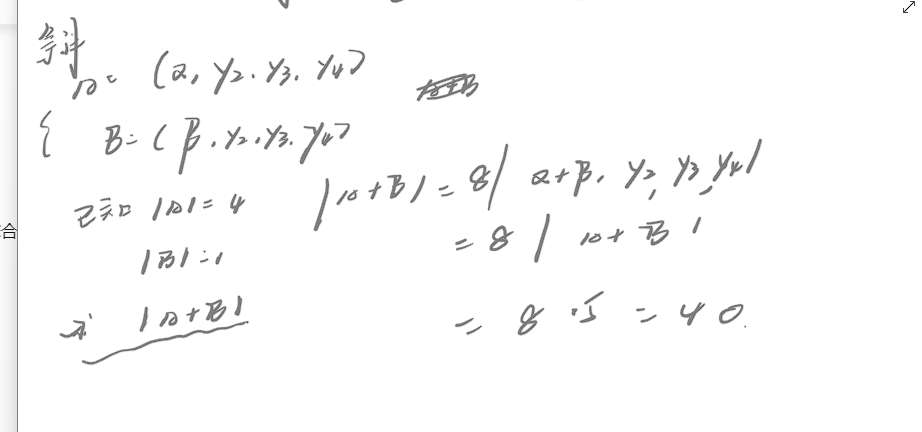 A = (α, γ2, γ3, γ4)
B = (β, γ2, γ3, γ4)
已知 |A| = 4
|B| = 1
求 |A+B|
|A+B| = 8| α+β, γ2, γ3, γ4|
= 8 | A + B |
= 8 · 5 = 40
合